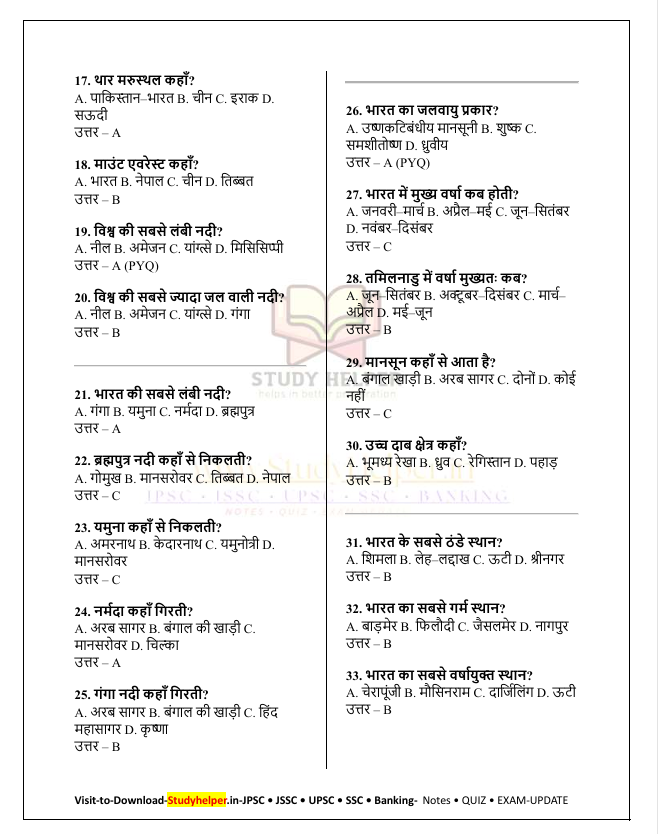 17. थार मरुस्थल कहाँ?
A. पाकिस्तान–भारत B. चीन C. इराक D.
सऊदी
उत्तर – A
18. माउंट एवरेस्ट कहाँ?
A. भारत B. नेपाल C. चीन D. तिब्बत
उत्तर – B
19. विश्व की सबसे लंबी नदी?
A. नील B. अमेजन C. यांग्त्से D. मिसिसिप्पी
उत्तर – A (PYQ)
20. विश्व की सबसे ज्यादा जल वाली नदी?
A. नील B. अमेजन C. यांग्त्से D. गंगा
उत्तर – B
21. भारत की सबसे लंबी नदी?
A. गंगा B. यमुना C. नर्मदा D. ब्रह्मपुत्र
उत्तर – A
22. ब्रह्मपुत्र नदी कहाँ से निकलती?
A. गोमुख B. मानसरोवर C. तिब्बत D. नेपाल
उत्तर – C
23. यमुना कहाँ से निकलती?
A. अमरनाथ B. केदारनाथ C. यमुनोत्री D.
मानसरोवर
उत्तर – C
24. नर्मदा कहाँ गिरती?
A. अरब सागर B. बंगाल की खाड़ी C.
मानसरोवर D. चिल्का
उत्तर – A
25. गंगा नदी कहाँ गिरती?
A. अरब सागर B. बंगाल की खाड़ी C. हिंद
महासागर D. कृष्णा
उत्तर – B
26. भारत का जलवायु प्रकार?
A. उष्णकटिबंधीय मानसूनी B. शुष्क C.
समशीतोष्ण D. ध्रुवीय
उत्तर – A (PYQ)
27. भारत में मुख्य वर्षा कब होती?
A. जनवरी–मार्च B. अप्रैल–मई C. जून–सितंबर
D. नवंबर–दिसंबर
उत्तर – C
28. तमिलनाडु में वर्षा मुख्यतः कब?
A. जून–सितंबर B. अक्टूबर–दिसंबर C. मार्च–
अप्रैल D. मई–जून
उत्तर – B
29. मानसून कहाँ से आता है?
A. बंगाल खाड़ी B. अरब सागर C. दोनों D. कोई
नहीं
उत्तर – C
30. उच्च दाब क्षेत्र कहाँ?
A. भूमध्य रेखा B. ध्रुव C. रेगिस्तान D. पहाड़
उत्तर – B
31. भारत के सबसे ठंडे स्थान?
A. शिमला B. लेह–लद्दाख C. ऊटी D. श्रीनगर
उत्तर – B
32. भारत का सबसे गर्म स्थान?
A. बाड़मेर B. फिलौदी C. जैसलमेर D. नागपुर
उत्तर – B
33. भारत का सबसे वर्षायुक्त स्थान?
A. चेरापूंजी B. मौसिनराम C. दार्जिलिंग D. ऊटी
उत्तर – B
STUDY HELPER
helps in better preparation
JPSC • JSSC • UPSC • SSC • BANKING
Visit-to-Download-Studyhelper.in-JPSC • JSSC • UPSC • SSC • Banking- Notes • QUIZ • EXAM-UPDATE